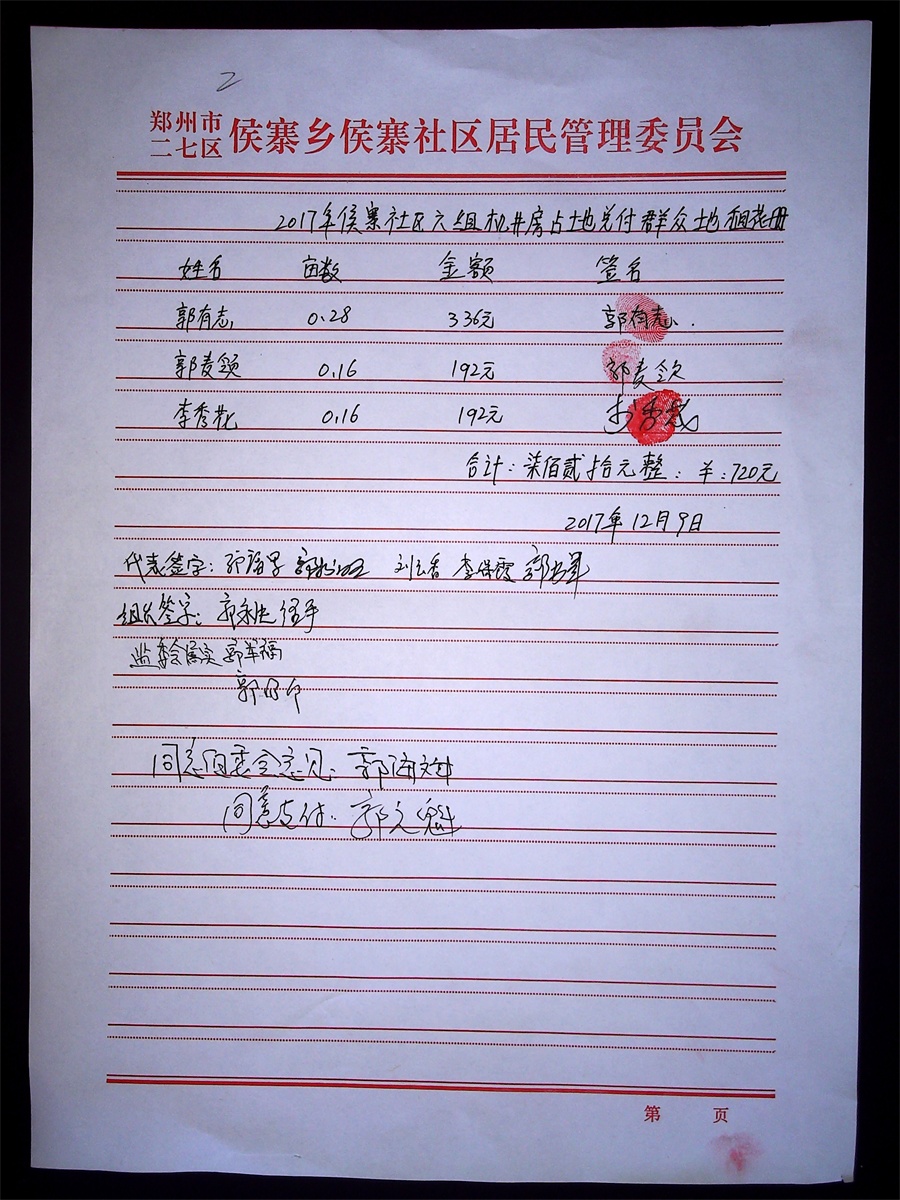 2
郑州市
二七区 侯寨乡侯寨社区居民管理委员会
2017年侯寨社区六组机井房占土地兑付群众土地租花册
姓名 亩数 金额 签名
郭有志 0.28 336元 郭有志
郭麦 0.16 192元 郭麦
李秀花 0.16 192元 李秀花
合计:柒佰贰拾元整:羊:720元
2017年12月9日
代表签字: 刘 香 李 郭
组长签字:郭永 经手
监委会属实 郭军福
郭 印
同意 委会意见: 郭
同意支付: 郭元魁
第 页